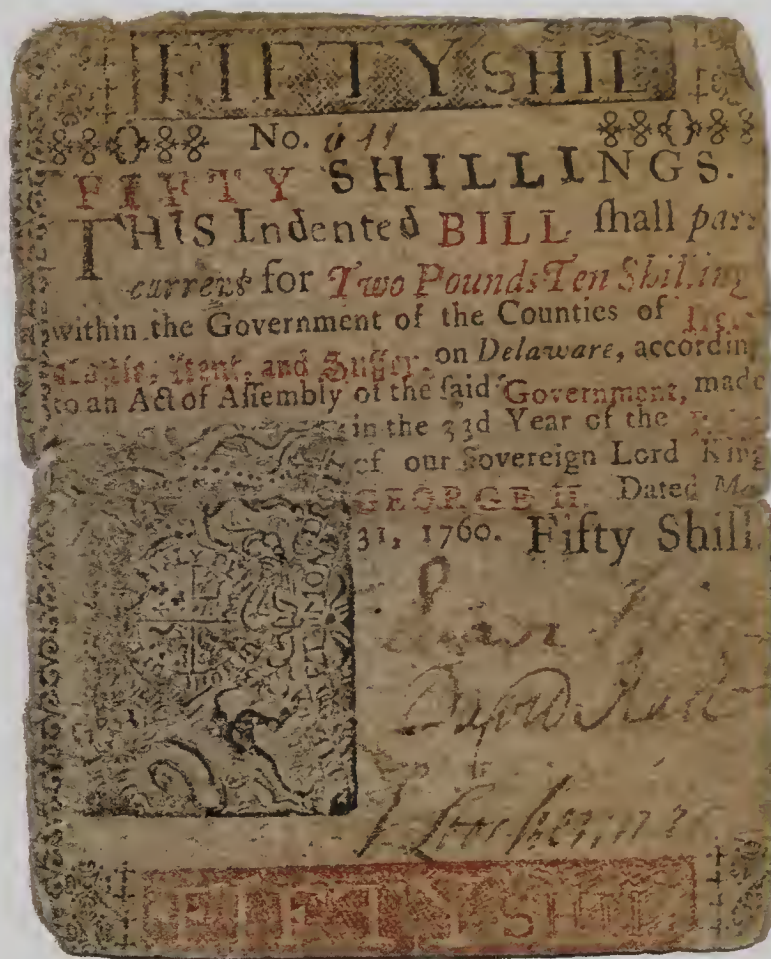 FIFTY SHIL
No.
FIFTY SHILLINGS.
THIS Indented BILL ſhall paſs
current for Two Pounds Ten Shilling
within the Government of the Counties of
and Suſſex, on Delaware, accordin
to an Act of Aſſembly of the ſaid Government, made
in the 33d Year of the
of our Sovereign Lord King
GEORGE II. Dated
31, 1760. Fifty Shill
MON
FIFTY SHIL